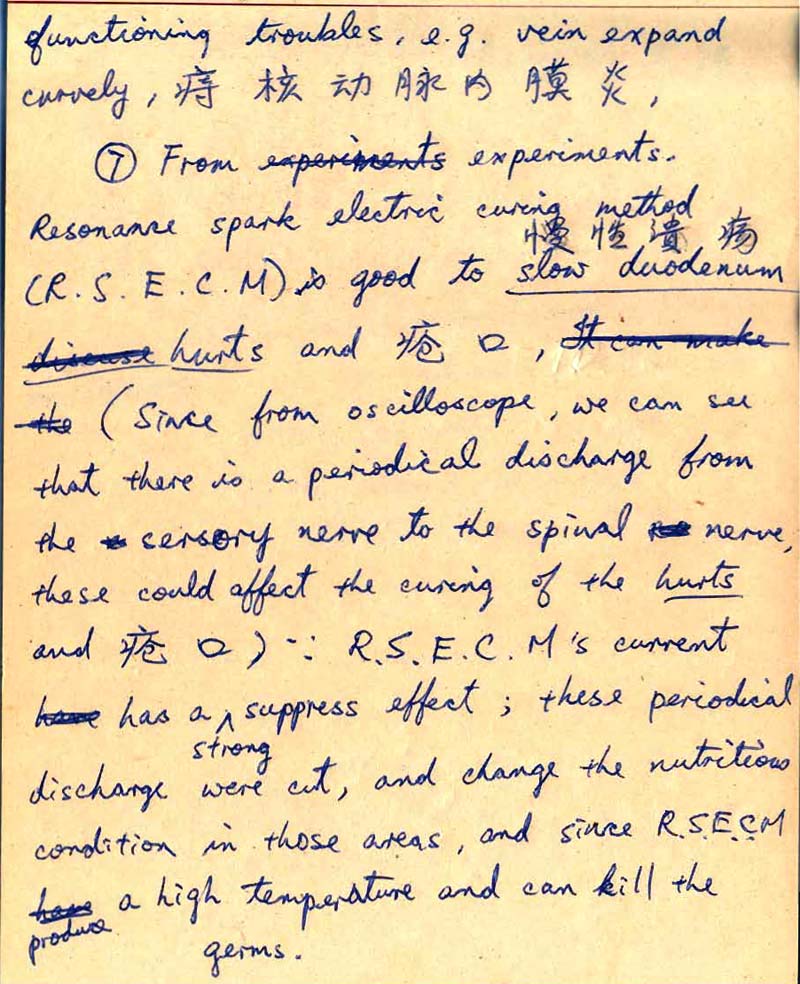 functioning troubles, e.g. vein expand
curvely, 痔核动脉内膜炎,
⑦ From experiments experiments.
Resonance spark electric curing method
慢性溃疡
(R.S.E.C.M) is good to slow duodenum
disease hurts and 疮口, It can make
the (Since from oscilloscope, we can see
that there is a periodical discharge from
the sensory nerve to the spinal nerve,
these could affect the curing of the hurts
and 疮口) ∵ R.S.E.C.M's current
have has a ^ suppress effect; these periodical
strong
discharge were cut, and change the nutritious
condition in those areas, and since R.S.E.C.M
have a high temperature and can kill the
produce
germs.